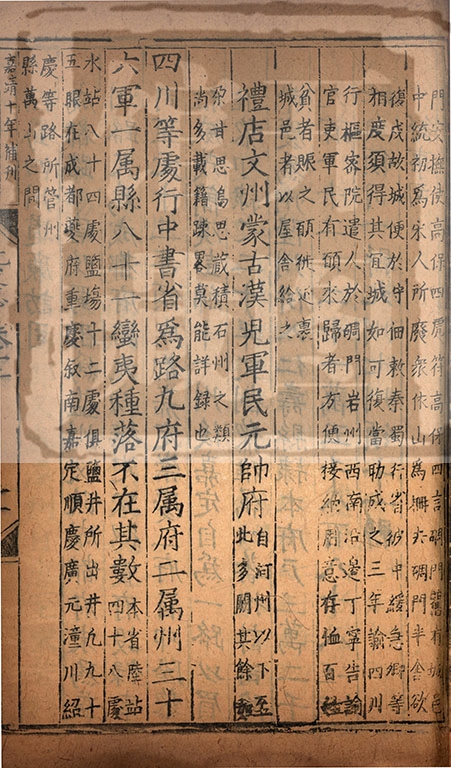 門安撫使高保四虎符高保四言碉門舊有城邑
中統初爲宋人所廢衆依山爲柵去碉門半舍欲
復戍故城便於守佃敕秦蜀行省彼中緩急卿等
相度須得其宜城如可復當助成之三年諭四川
行樞密院遣人於碉門岩州西南沿邊丁寧告諭
官吏軍民有願來歸者方便接納用意存恤百姓
貧者賑之願徙近裏
城邑者以屋舍給之
禮店文州蒙古漢兒軍民元帥府自河州以下至
此多闕其餘如
朶甘思烏思藏積石州之類
尚多載籍踈畧莫能詳録也
四川等處行中書省爲路九府三属府二属州三十
六軍一属縣八十一蠻夷種落不在其數本省陸站
四十八處
水站八十四處鹽場十二處俱鹽井所出井凡九十
五眼在成都夔府重慶叙南嘉定順慶廣元潼川紹
慶等路所管州
縣萬山之間
嘉靖十年補刊